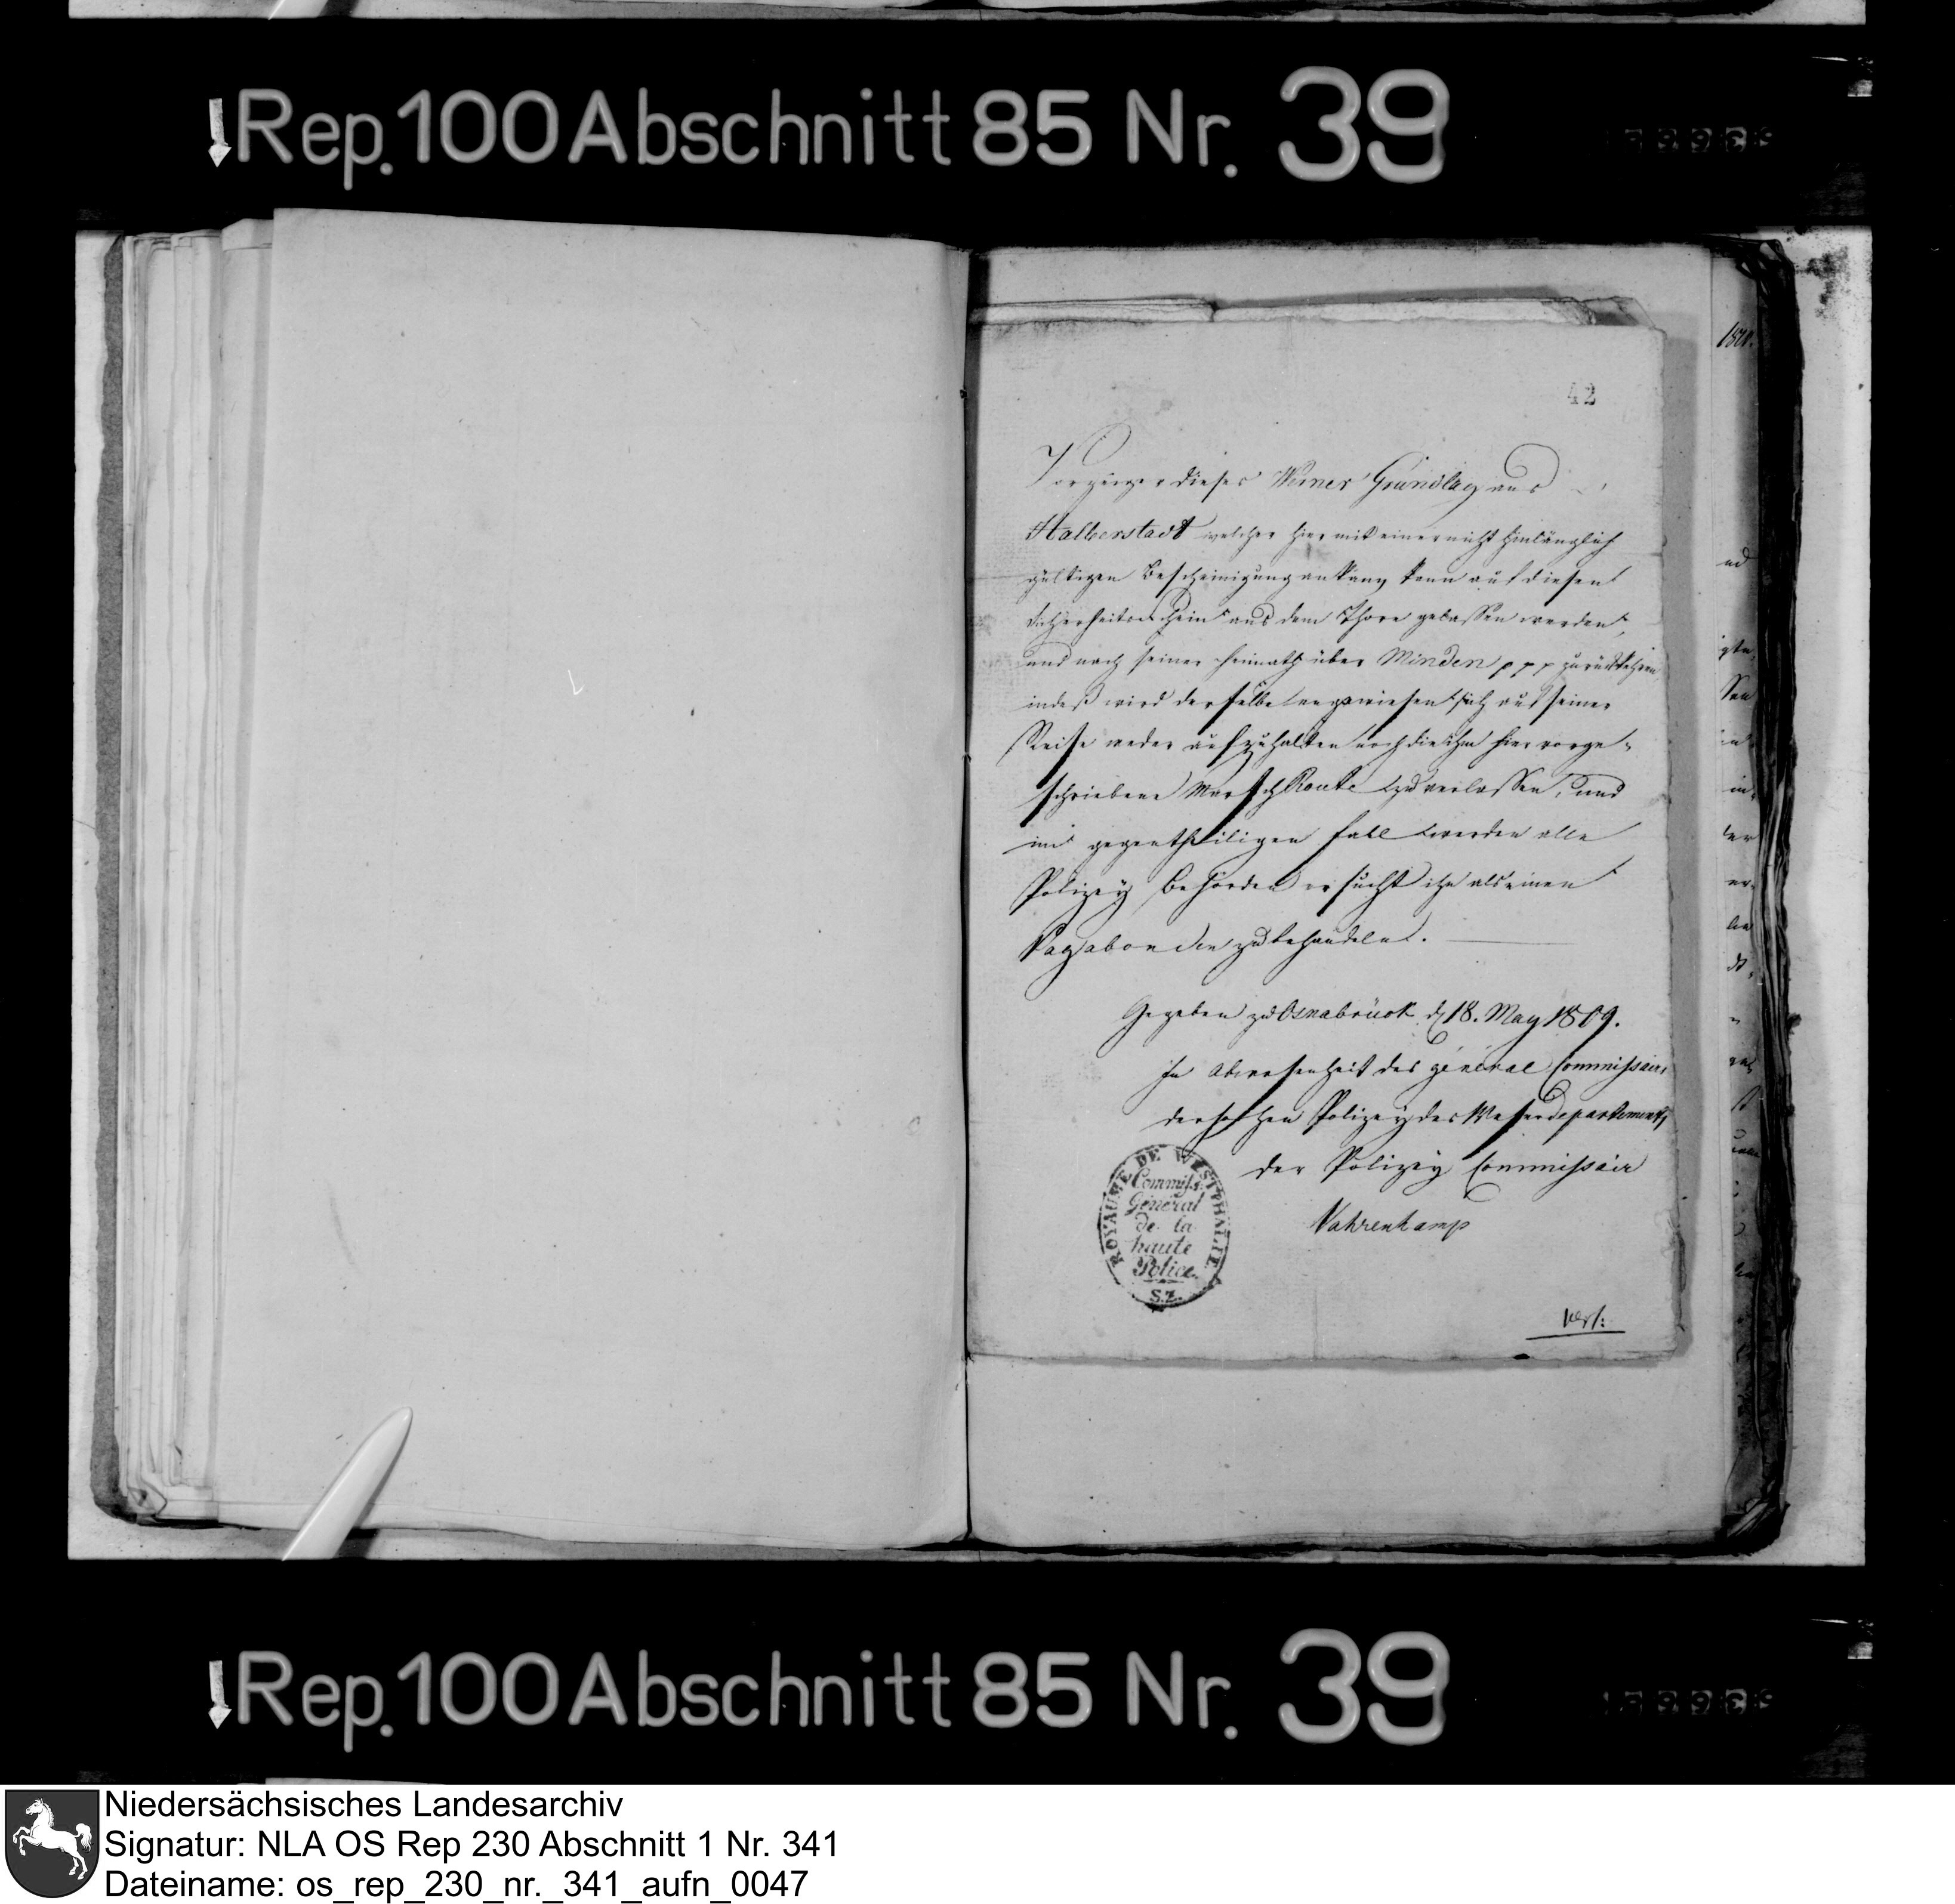 Rep. 100 Abschnitt 85 Nr. 39
42
Vorzeiger dieses Meiner Gründlag aus
Halberstadt welcher hier mit einer nicht hinlänglich
gültigen Bescheinigung ankam kann auf diesen
Sicherheitsschein aus dem Thore gelassen werden,
und nach seiner Heimath über Minden ppp zurückkehren
indeß wird derselbe angewiesen sich auf seiner
Reise weder aufzuhalten noch die ihm hier vorge-
schriebene Marsch Route zu verlassen, und
im gegentheiligen Fall werden alle
Polizey Behörden ersucht ihn als einen
Vagabonden zu behandeln.
Gegeben zu Osnabrück d 18. May 1809.
In Abwesenheit des général Commissairs
der hohen Polizey des Weserdepartements
der Polizey Commissair
Vahrenkamp
ROYAUME DE WESTPHALIE
Commiss.
Général
de la
haute
Police
S.Z.
1801.
Rep. 100 Abschnitt 85 Nr. 39
Niedersächsisches Landesarchiv
Signatur: NLA OS Rep 230 Abschnitt 1 Nr. 341
Dateiname: os_rep_230_nr._341_aufn_0047